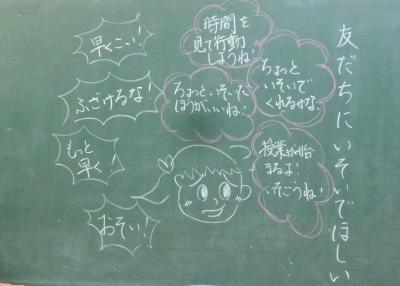 友だちにいそいでほしい
時間を
見て行動
しようね!
ちょっと
いそいで
くれるかな。
ちょっと、いそいだ
ほうがいいね!
授業が始
まるよ!
いそごうね!
早くこい!
ふざけるな!
もっと
早く!
おそい!